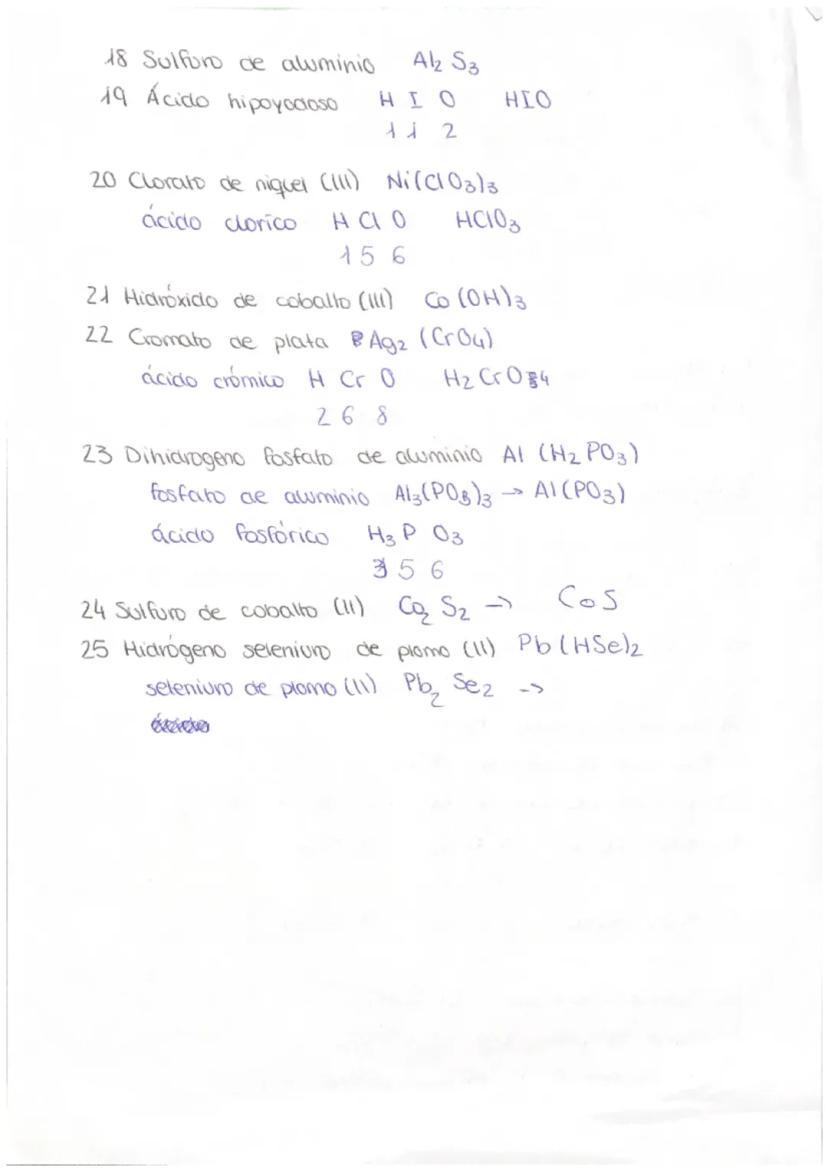 18 Sulfuro de aluminio Al2 S3
19 Ácido hipoyodoso H I O HIO
1 1 2
20 Clorato de niquel (III) Ni(ClO3)3
ácido clorico H Cl O HClO3
1 5 6
21 Hidróxido de cobalto (III) Co (OH)3
22 Cromato de plata Ag2 (CrO4)
ácido crómico H Cr O H2 CrO4
2 6 8
23 Dihidrogeno fosfato de aluminio Al (H2 PO3)
fosfato de aluminio Al3(PO3)3 → Al(PO3)
ácido fosfórico H3 P O3
3 5 6
24 Sulfuro de cobalto (II) Co2 S2 → CoS
25 Hidrógeno seleniuro de plomo (II) Pb(HSe)2
seleniuro de plomo (II) Pb2 Se2 →